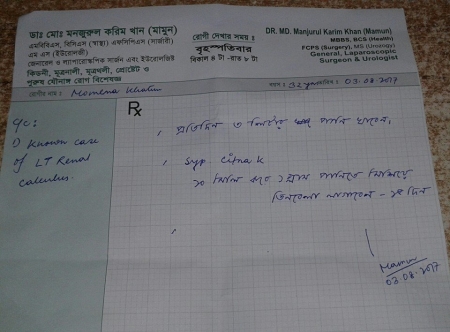 ডাঃ মোঃ মনজুরুল করিম খান (মামুন)
এমবিবিএস, বিসিএস (স্বাস্থ্য) এফসিপিএস (সার্জারী)
এম এস (ইউরোলজী)
জেনারেল ও ল্যাপারোস্কপিক সার্জন এবং ইউরোলজিষ্ট
কিডনী, মূত্রনালী, মূত্রথলী, প্রোষ্টেট ও
পুরুষ যৌনাঙ্গ রোগ বিশেষজ্ঞ
রোগী দেখার সময় :
বৃহস্পতিবার
বিকাল ৪ টা - রাত ৮ টা
DR. MD. Manjurul Karim Khan (Mamun)
MBBS, BCS (Health)
FCPS (Surgery), MS (Urology)
General, Laparoscopic
Surgeon & Urologist
রোগীর নাম : Momena Khatun
বয়স : 32 তারিখ : 03.08.2017
C/C:
1) Known case
of LT Renal
calculus.
Rx
প্রতিদিন ৩ লিটার পানি খাবেন।
Syp. Citra K
১০ মিলি করে ১ গ্লাস পানিতে মিশিয়ে
তিনবেলা - ১৫ দিন
Mamun
03.08.2017